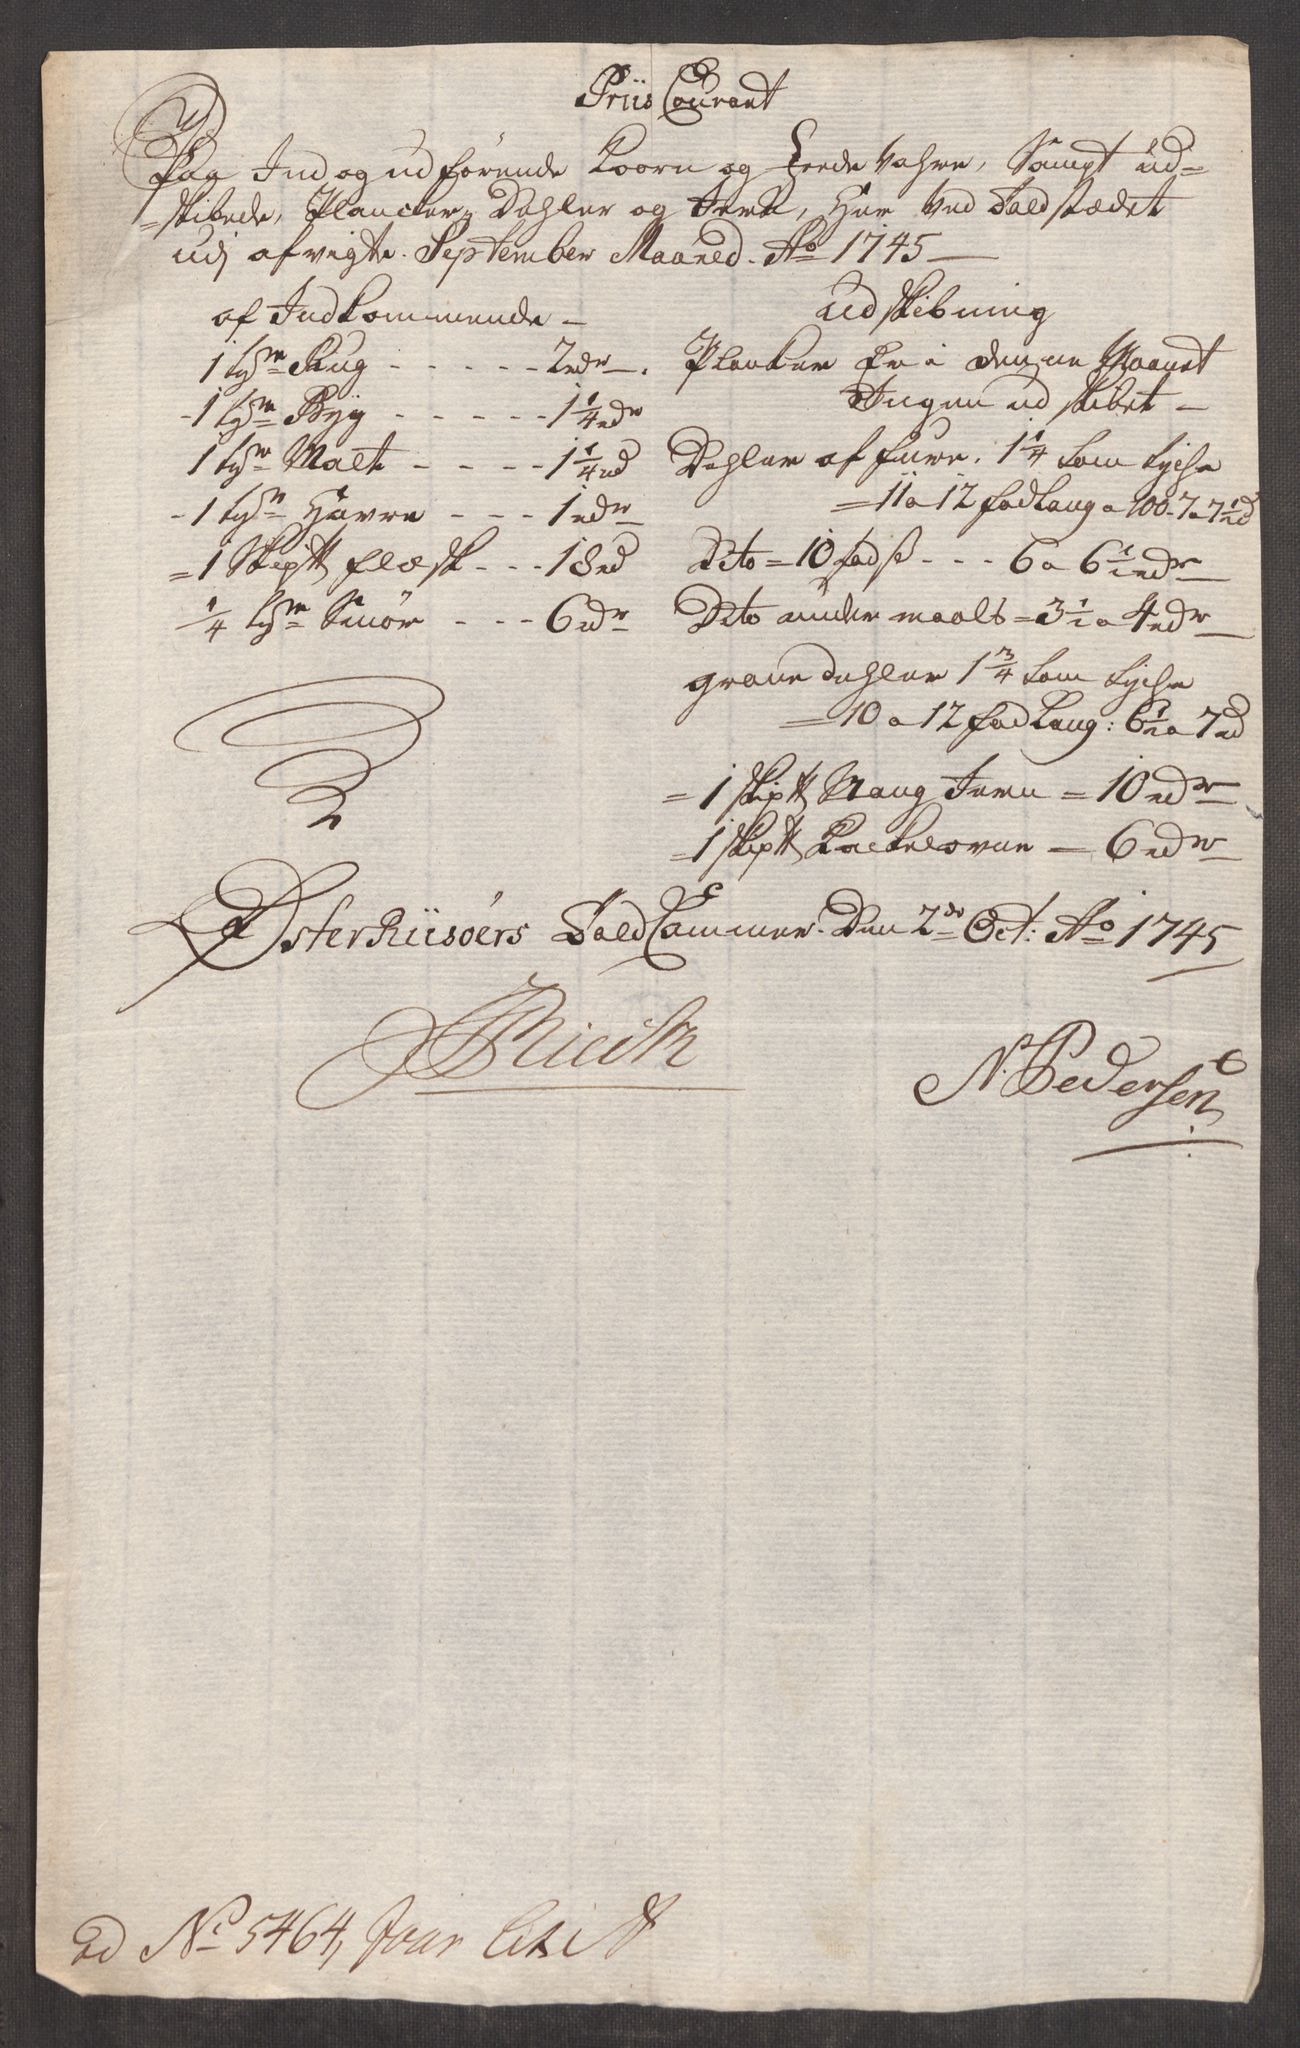 Priis Courant
Paa Ind og udförende Koorn og Feede Vahre, Sampt ud=
=skibede, Plancker, Dehler og Jern, Her Ved Toldstædet
udj afvigte September Maaned. Ao 1745
af Indkommende
1 tyn Rug - - - - - 2 rdr
1 tyn Byg - - - - - 1 1/4 rdr
1 tyn Malt - - - - 1 1/4 rd
1 tyn Havre - - - 1 rdr
1 Skip℔ flæsk - - - 18 rd
1/4 tyn Smör - - - 6 rdr
Udskibning
Planker Er i denne Maanet
Ingen udskibet
Dehler af furu, 1 1/4 tom tyche
= 11 a 12 fod Lang a 100 - 7 a 7 1/2 rd
Dito = 10 fods - - - 6 a 6 1/2 rdr
Dito under maals = 3 1/2 a 4 rdr
grane dehler 1 3/4 tom tyche
= 10 a 12 fod Lang: 6 1/2 a 7 rd
= 1 skip℔ Stang Jern = 10 rdr
= 1 skip℔ Kackelovne - 6 rdr
Østerriisöers Told Cammer Den 2de Oct: Ao 1745
N. Pedersen
ad No 5464,